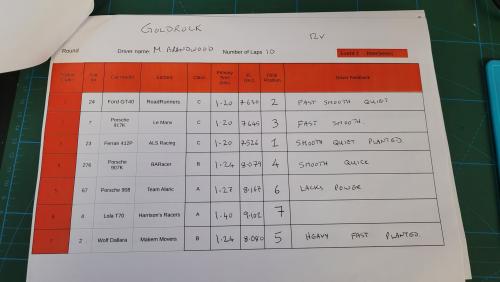 GOLDROCK
12V
Round Driver name: M. Number of Laps 10
Car model Class Driver Feedback
24 Ford GT40 RoadRunners C 1.20 7.630 2 FAST SMOOTH QUIET
7 Porsche 917K Le Mans C 1.20 7.645 3 FAST SMOOTH.
23 Ferrari 412P ALS Racing C 1.20 7.526 1 SMOOTH QUIET PLANTED
276 Porsche 907K BARacer B 1.24 8.079 4 SMOOTH QUICK
67 Porsche 908 Team Alaric A 1.27 8.167 6 LACKS POWER
6 Lola T70 Harrison's Racers A 1.40 9.102 7
2 Wolf Dallara Makem Movers B 1.24 8.080 5 HEAVY FAST PLANTED.